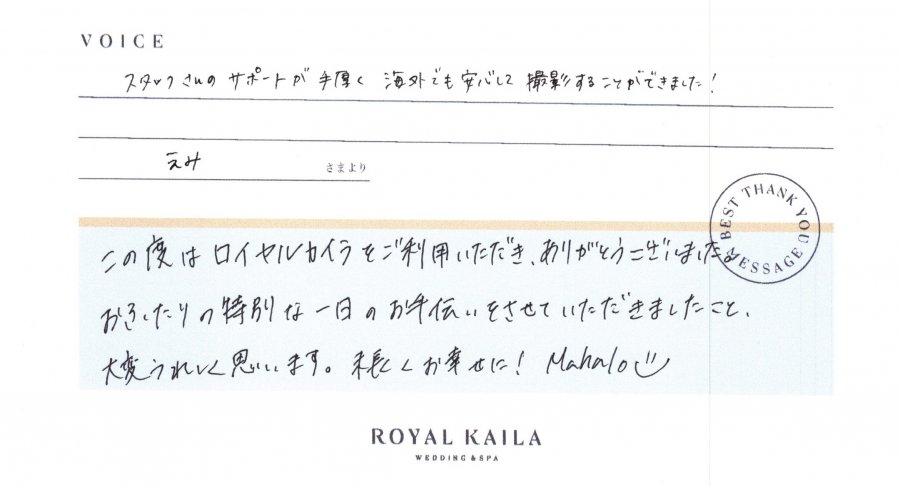 VOICE
スタッフさんの サポートが 手厚く 海外でも安心して 撮影することができました!
えみ さまより
BEST THANK YOU MESSAGE
この度は ロイヤルカイラをご利用いただき、ありがとうございました。
おふたりの特別な一日のお手伝いをさせていただきましたこと、
大変うれしく思います。末長くお幸せに! Mahalo
ROYAL KAILA
WEDDING & SPA